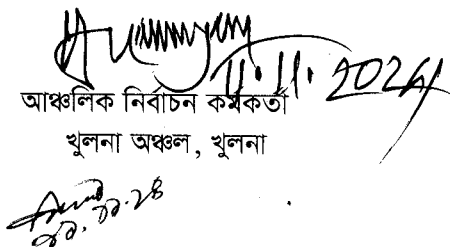 11.11.2024
আঞ্চলিক নির্বাচন কর্মকর্তা
খুলনা অঞ্চল, খুলনা